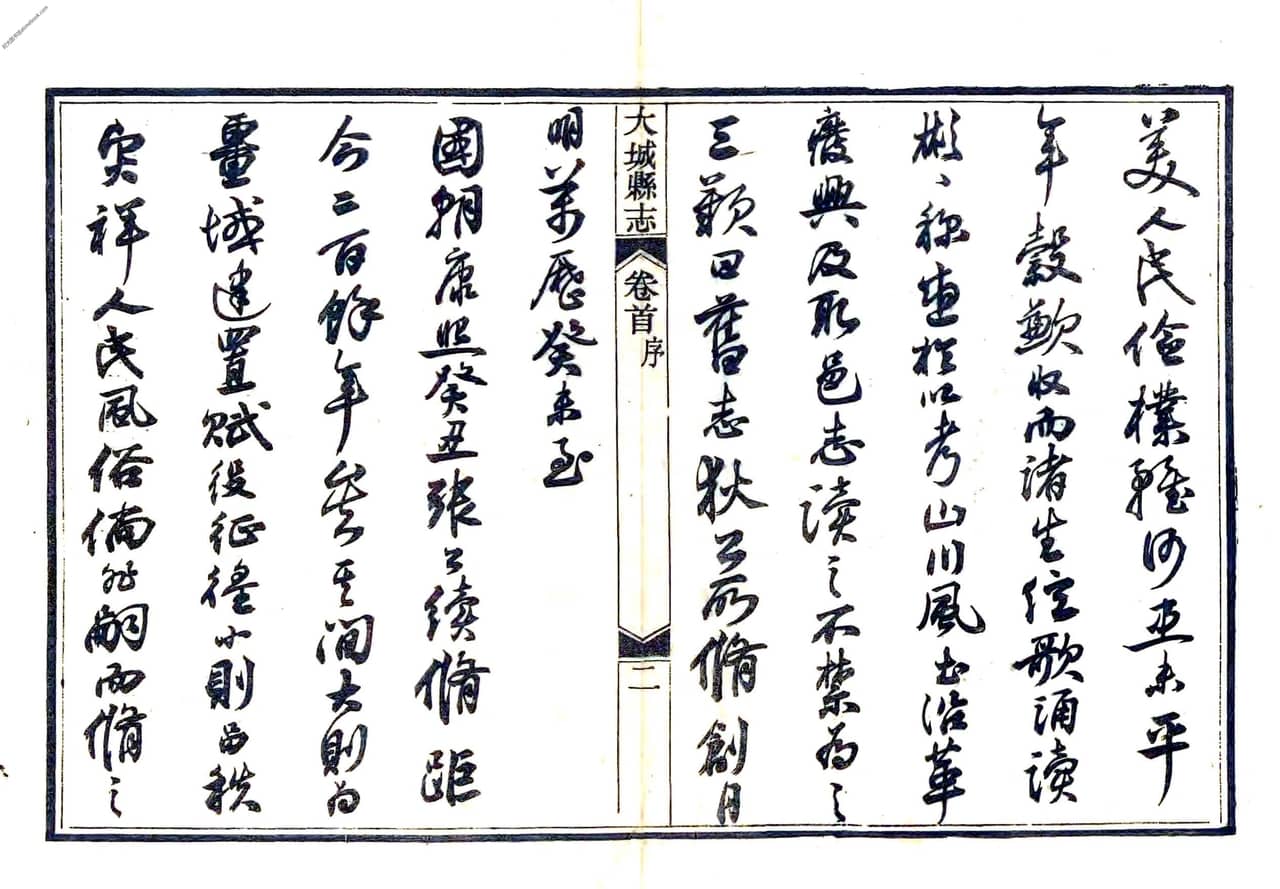 美人民儉樸雖河患未平
年穀歉收而諸生絃歌誦讀
彬彬稱盛於以考山川風土沿革
廢興及取邑志讀之不禁為之
三歎曰舊志狄公所脩創自
大城縣志 卷首 序 二
明萬歷癸未至
國朝康熙癸丑張公續脩距
今二百餘年矣其間大則如
畺域建置賦役征徭小則品秩
災祥人民風俗倘非嗣而脩之